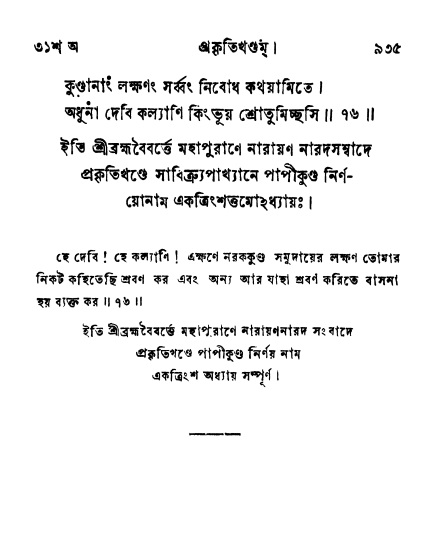 ৩১শ অ প্রকৃতিখণ্ডম্। ৯৩৫
কুণ্ডানাং লক্ষণং সর্ব্বং নিবোধ কথয়ামিতে।
অধুনাঁ দেবি কল্যাণি কিংভূয় শ্রোতুমিচ্ছসি॥ ৭৬॥
ইতি শ্রীব্রহ্মবৈবর্ত্তে মহাপুরাণে নারায়ণ নারদসম্বাদে
প্রকৃতিখণ্ডে সাবিত্র্যপাখ্যানে পাপীকুণ্ড নির্ণ-
য়োনাম একত্রিংশত্তমোহধ্যায়ঃ।
হে দেবি! হে কল্যাণি! এক্ষণে নরককুণ্ড সমূদায়ের লক্ষণ তোমার
নিকট কহিতেছি শ্রবণ কর এবং অন্য আর যাহা শ্রবণ করিতে বাসনা
হয় ব্যক্ত কর॥ ৭৬॥
ইতি শ্রীব্রহ্মবৈবর্ত্তে মহাপুরাণে নারায়ণনারদ সংবাদে
প্রকৃতিখণ্ডে পাপীকুণ্ড নির্ণয় নাম
একত্রিংশ অধ্যায় সম্পূর্ণ।